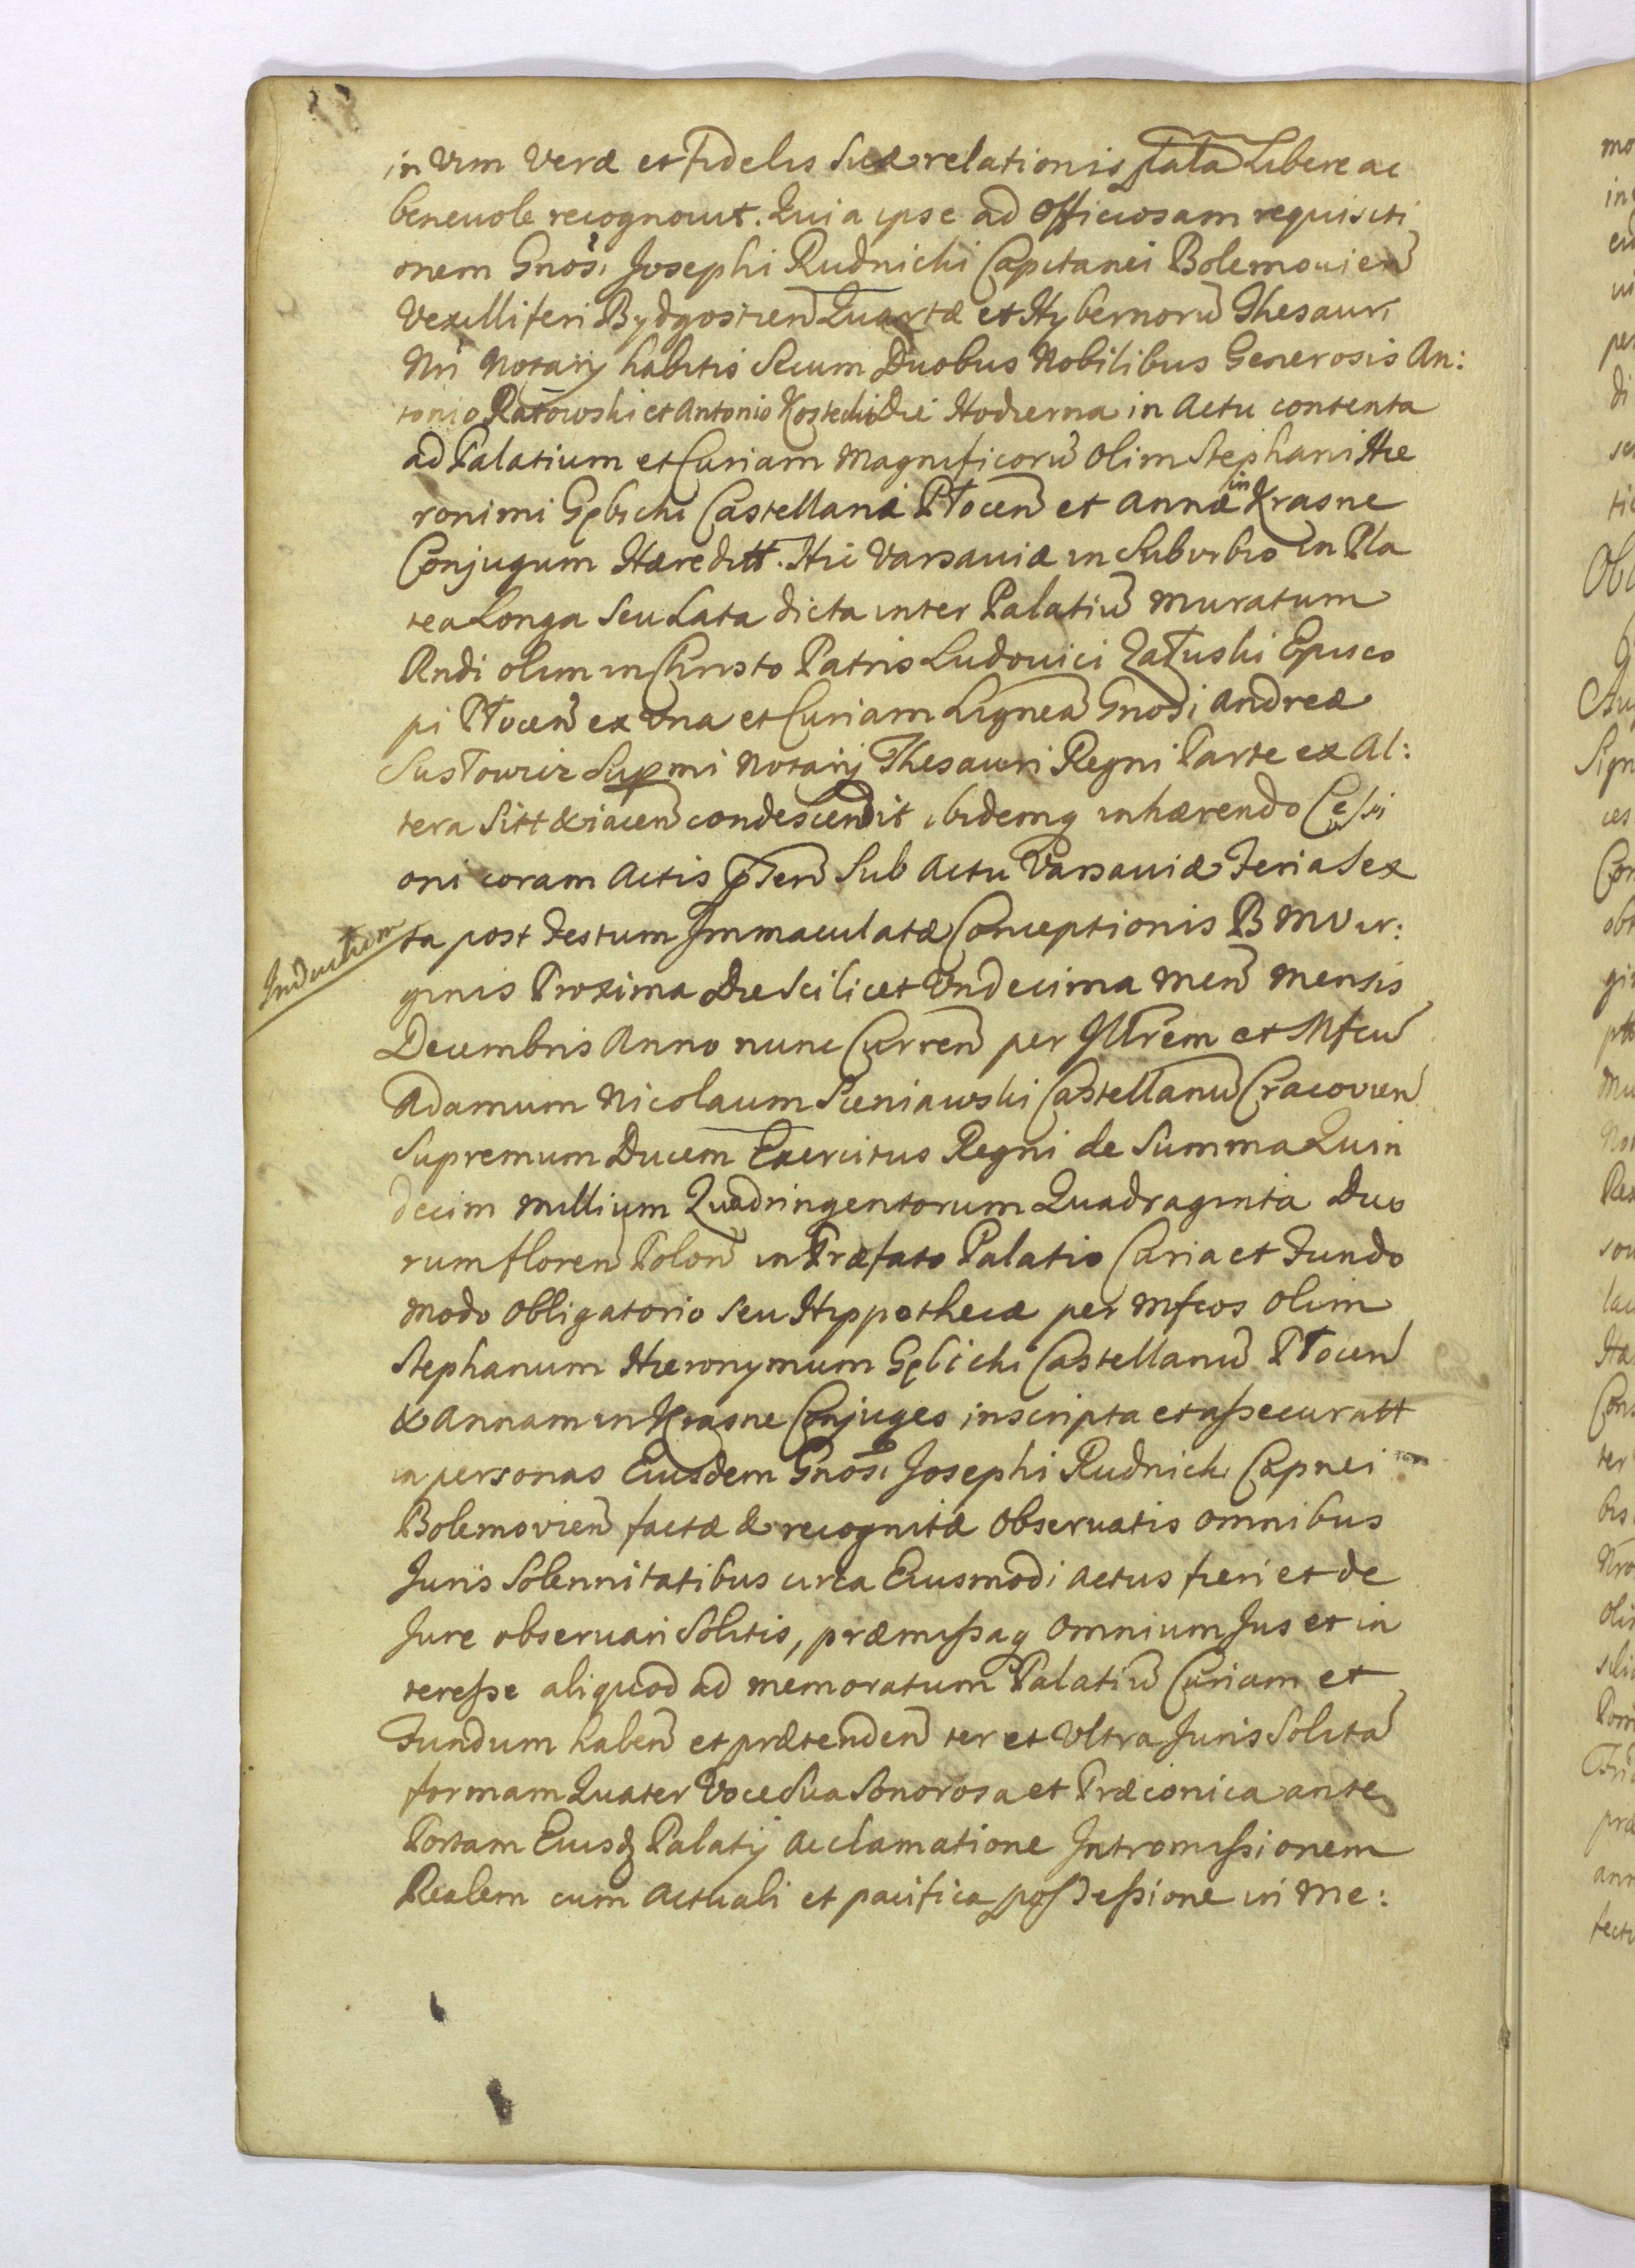 in Vim Veræ et Fidelis Suæ relationis Libere ac
beneuole recognouit. Quia ipse ad Officiosam requisiti
onem Gnosi Josephi Rudnicki Capitanei Bolemouien
Vexilliferi Bydgostien Quartæ et Hybernorũ Thesauri
Nri Notarij habitis Secum Duobus Nobilibus Generosis An:
tonio Ratowski et Antonio Kostecki Die Hodierna in Actu contenta
ad Palatium et Curiam Magnificorũ Olim Stephani Hie
ronimi Gębicki Castellani Płocen et Annæ in Krasne
Conjugum Hæreditt. Hic Varsauiæ in Suburbio in Pla
tea Longa Seu Lata dicta inter Palatiũ Muratum
Rndi olim in Christo Patris Ludouici Załuski Episco
pi Płocen ex Vna et Curiam Ligneã Gnosi Andreæ
Supmi Notarij Thesauri Regni Parte ex Al:
tera Sitt & iacen condescendit ibidemq inhærendo Cessi
oni coram Actis pnten Sub Actu Varsauiæ Feria Sex
Inductiem
ta post Festum Immaculatæ Conceptionis B M Vir:
ginis Proxima Die Scilicet Vndecima Men Mensis
Decembris Anno nunc Curren per Illrem et Mfcũ
Adamum Nicolaum Sieniawski Castellanũ Cracovien
Supremum Ducem Exercitus Regni de Summa Quin
decim Millium Quadringentorum Quadraginta Duo
rum floren Polon in Præfato Palatio Curia et Fundo
modo obligatorio seu Hyppothecæ per Mfcos Olim
Stephanum Hieronymum Gębicki Castellanũ Płocen
& Annam in Krasne Conjuges inscripta et assecuratt
in personas Eiusdem Gnosi Josephi Rudnicki Capnei
Bolemovien factæ & recognitæ Observatis omnibus
Juris Solennitatibus circa Eiusmodi actus fieri et de
Jure observari Solitis, præmissaq Omnium Jus et in
teresse aliquod ad memoratum Palatiũ Curiam et
Fundum haben et prætenden ter et Vltra Juris Solitã
formam Quater Voce Sua Sonorosa et Præconica ante
Portam Eiusq Palatij Acclamatione Intromissionem
Realem cum Actuali et pacifica possessione in Me: